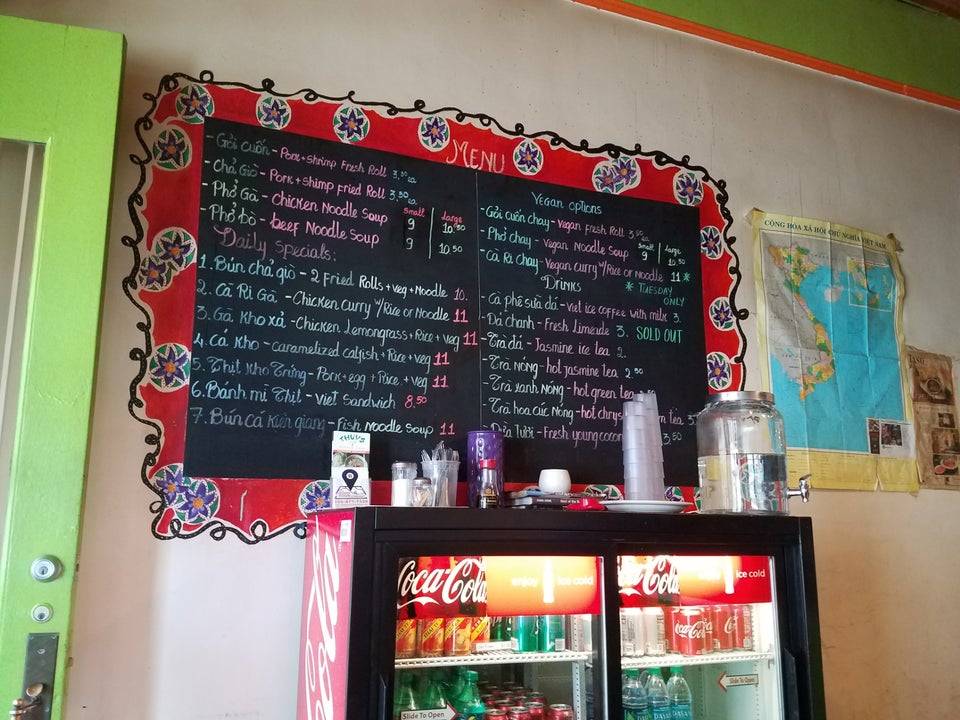 MENU
- Gỏi cuốn - Pork + Shrimp Fresh Roll 3.50 ea
- Chả Giò - Pork + Shrimp Fried Roll 3.50 ea
small large
- Phở Gà - Chicken Noodle Soup 9 10.50
- Phở bò - beef Noodle Soup 9 10.50
Daily specials:
1. Bún chả giò - 2 Fried Rolls + veg + Noodle 10.
2. Cà Ri Gà - Chicken Curry w/ Rice or Noodle 11
3. Gà kho xả - Chicken Lemongrass + Rice + veg 11
4. Cá kho - caramelized catfish + Rice + veg 11
5. Thịt kho Trứng - Pork + egg + Rice + veg 11
6. Bánh mì Thịt - Viet Sandwich 8.50
7. Bún cá Kiên giang - Fish Noodle Soup 11
Vegan options
- Gỏi cuốn chay - Vegan Fresh Roll
small large
- Phở chay - Vegan Noodle Soup 9 10.50
- Cà Ri chay - Vegan Curry w/ Rice or Noodle 11 *
* TUESDAY ONLY
Drinks
- Cà phê sữa đá - Viet ice coffee with milk 3.
- Đá chanh - Fresh Limeade 3. SOLD OUT
- Trà đá - Jasmine ice tea 2.
- Trà nóng - hot jasmine tea 2.50
- Trà xanh nóng - hot green tea
- Trà hoa cúc nóng - hot
- Dừa tươi - Fresh young 3.50
CỘNG HÒA XÃ HỘI CHỦ NGHĨA VIỆT NAM
Coca-Cola
enjoy ice cold
Coca-Cola
ice cold
Coca-Cola
Slide To Open
Slide To Open
DASANI